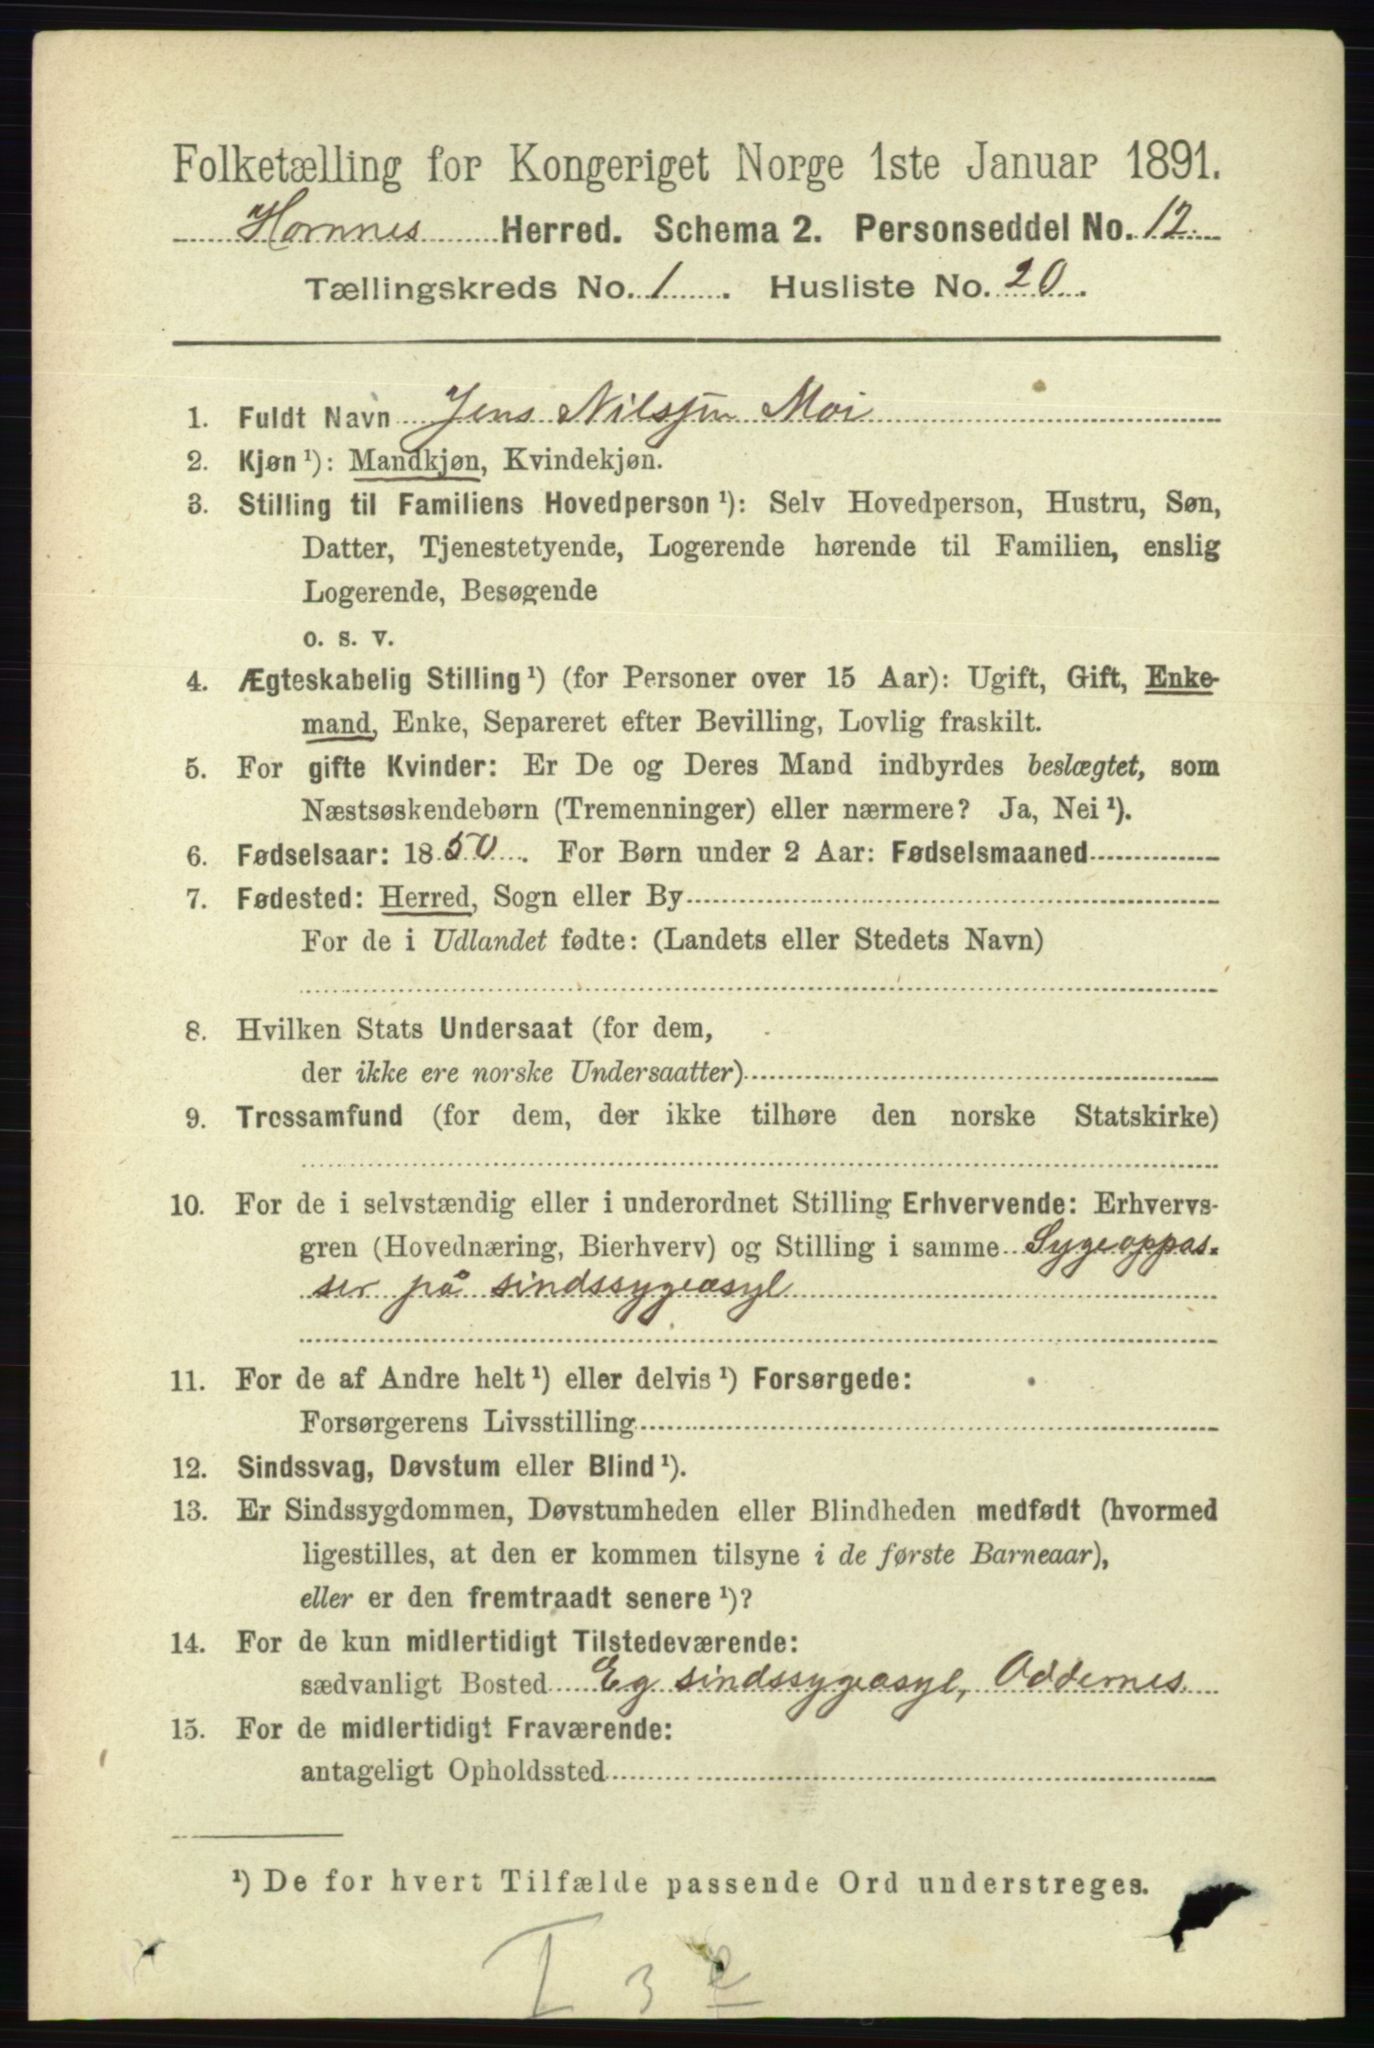 Folketælling for Kongeriget Norge 1ste Januar 1891.
Hornnes Herred. Schema 2. Personseddel No. 12.
Tællingskreds No. 1. Husliste No. 20.
1. Fuldt Navn Jens Nilssøn Moi
2. Kjøn ¹): Mandkjøn, Kvindekjøn.
3. Stilling til Familiens Hovedperson ¹): Selv Hovedperson, Hustru, Søn,
Datter, Tjenestetyende, Logerende hørende til Familien, enslig
Logerende, Besøgende
o. s. v.
4. Ægteskabelig Stilling ¹) (for Personer over 15 Aar): Ugift, Gift, Enke-
mand, Enke, Separeret efter Bevilling, Lovlig fraskilt.
5. For gifte Kvinder: Er De og Deres Mand indbyrdes beslægtet, som
Næstsøskendebørn (Tremenninger) eller nærmere? Ja, Nei ¹).
6. Fødselsaar: 1850. For Børn under 2 Aar: Fødselsmaaned
7. Fødested: Herred, Sogn eller By
For de i Udlandet fødte: (Landets eller Stedets Navn)
8. Hvilken Stats Undersaat (for dem,
der ikke ere norske Undersaatter)
9. Trossamfund (for dem, der ikke tilhøre den norske Statskirke)
10. For de i selvstændig eller i underordnet Stilling Erhvervende: Erhvervs-
gren (Hovednæring, Bierhverv) og Stilling i samme Sygeoppas-
ser på sindssygeasyl
11. For de af Andre helt ¹) eller delvis ¹) Forsørgede:
Forsørgerens Livsstilling
12. Sindssvag, Døvstum eller Blind ¹).
13. Er Sindssygdommen, Døvstumheden eller Blindheden medfødt (hvormed
ligestilles, at den er kommen tilsyne i de første Barneaar),
eller er den fremtraadt senere ¹)?
14. For de kun midlertidigt Tilstedeværende:
sædvanligt Bosted Eg sindssygeasyl, Oddernes.
15. For de midlertidigt Fraværende:
antageligt Opholdssted
¹) De for hvert Tilfælde passende Ord understreges.
I 3 e